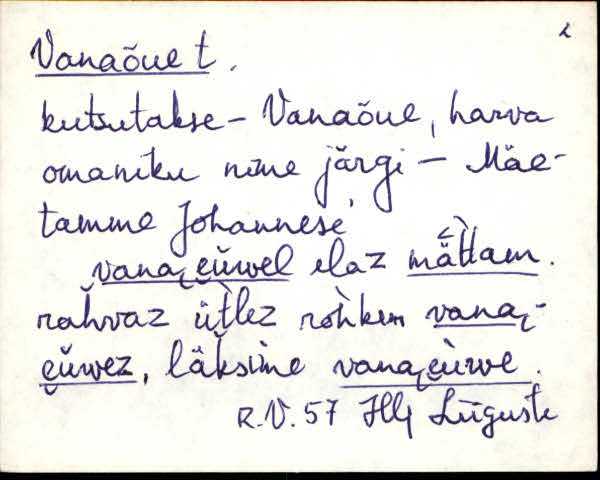 2
Vanaõue t.
kutsutakse – Vanaõue, harva
omaniku nime järgi – Mäe-
tamme Johannese,
vana͜ eŭwel elaz mät̀tam.
rahvaz üt̀lez roh̀kem vana͜-
eŭwez, läksime vana͜ eùwe.
R.V. 57 Hlj Lüguste